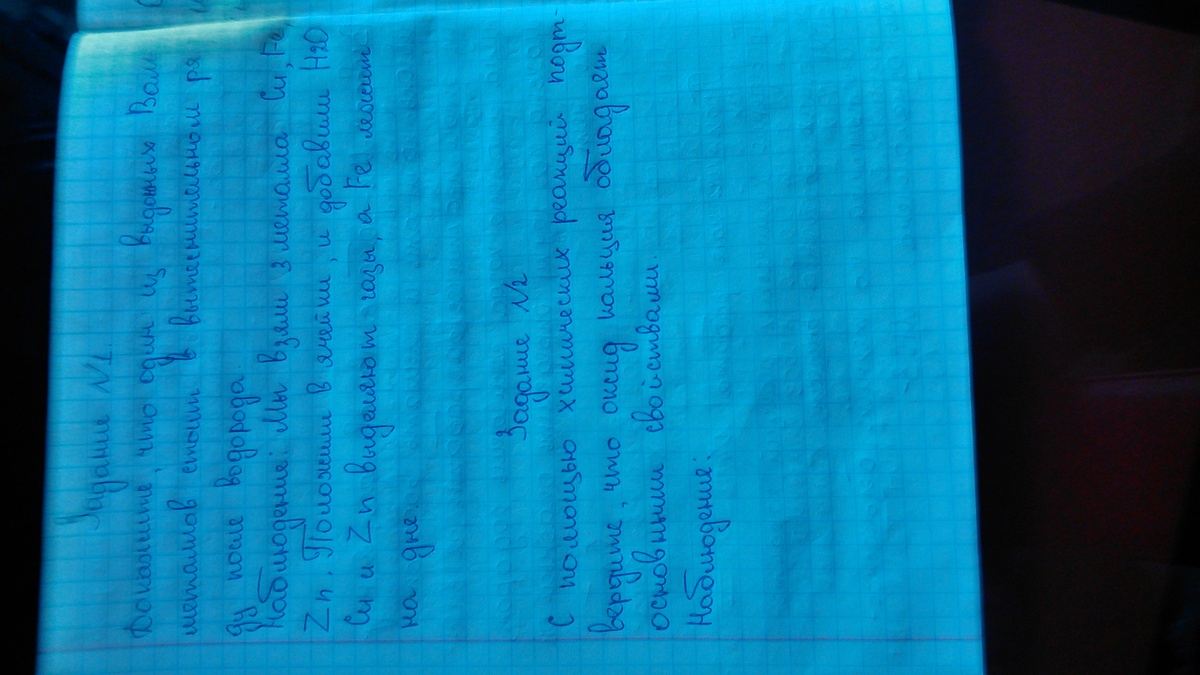 Задание №1.
Докажите, что один из выданных Вам
металлов стоит в вытеснительном ря
ду после водорода
Наблюдение: Мы взяли 3 металла Cu, Fe,
Zn. Положили в ячейки, и добавили H2O
Cu и Zn выделяют газы, а Fe лежит
на дне.
Задание №2
С помощью химических реакций подт-
вердите, что оксид кальция обладает
основными свойствами.
Наблюдение: